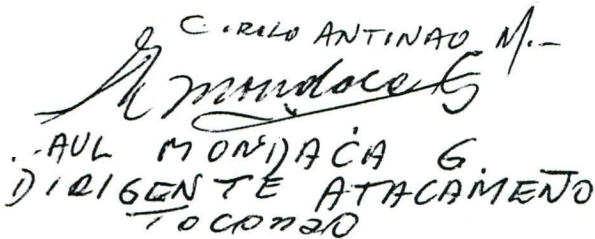 CIRILO ANTINAO M.-
R Mondaca G
.-AUL MONDACA G.
DIRIGENTE ATACAMEÑO
TOCONAO